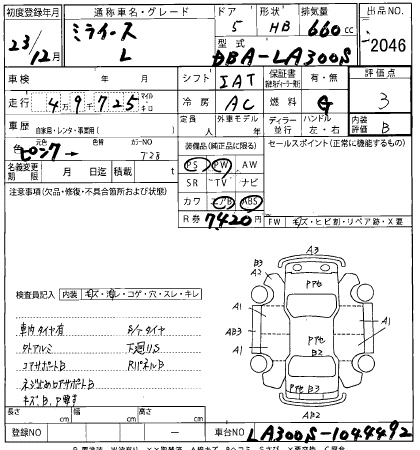 初度登録年月 通称車名・グレード ドア 形状 排気量 出品NO.
23/12月 ミライース L 5 HB 660cc 2046
型式 DBA-LA300S
車検 年 月 シフト IAT 保証書 有・無 評価点
走行 49725 マイル キロ 冷房 AC 燃料 G 3
車歴 自家用・レンタ・事業用( ) 定員 人 外車モデル 年 ディーラー 並行 ハンドル 左・右 内装評価 B
元色 色替 カラーNO 装備品(純正品に限る) セールスポイント(正常に機能するもの)
ピンク → T28 PS PW AW
名義変更期限 月 日迄 積載 t SR TV ナビ
注意事項(欠品・修復・不具合箇所および状態) カワ エアB ABS
R券 7420円 FW キズ・ヒビ割・リペア跡・X要
A3
B3
A2
Pアセ
A1 A1
AB3 Pアセ A1
A1 B2
Pアセ B3
AB2
検査員記入 内装 キズ・汚レ・コゲ・穴・スレ・キレ
車内タイヤ有 Bハケタイヤ
外アルミ 下廻りS
コアサポートB RパネルB
ネジ止めコアサポートB
キズ、B、P要す
長さ cm 幅 cm 高さ cm
登録NO 車台NO LA300S-1044492